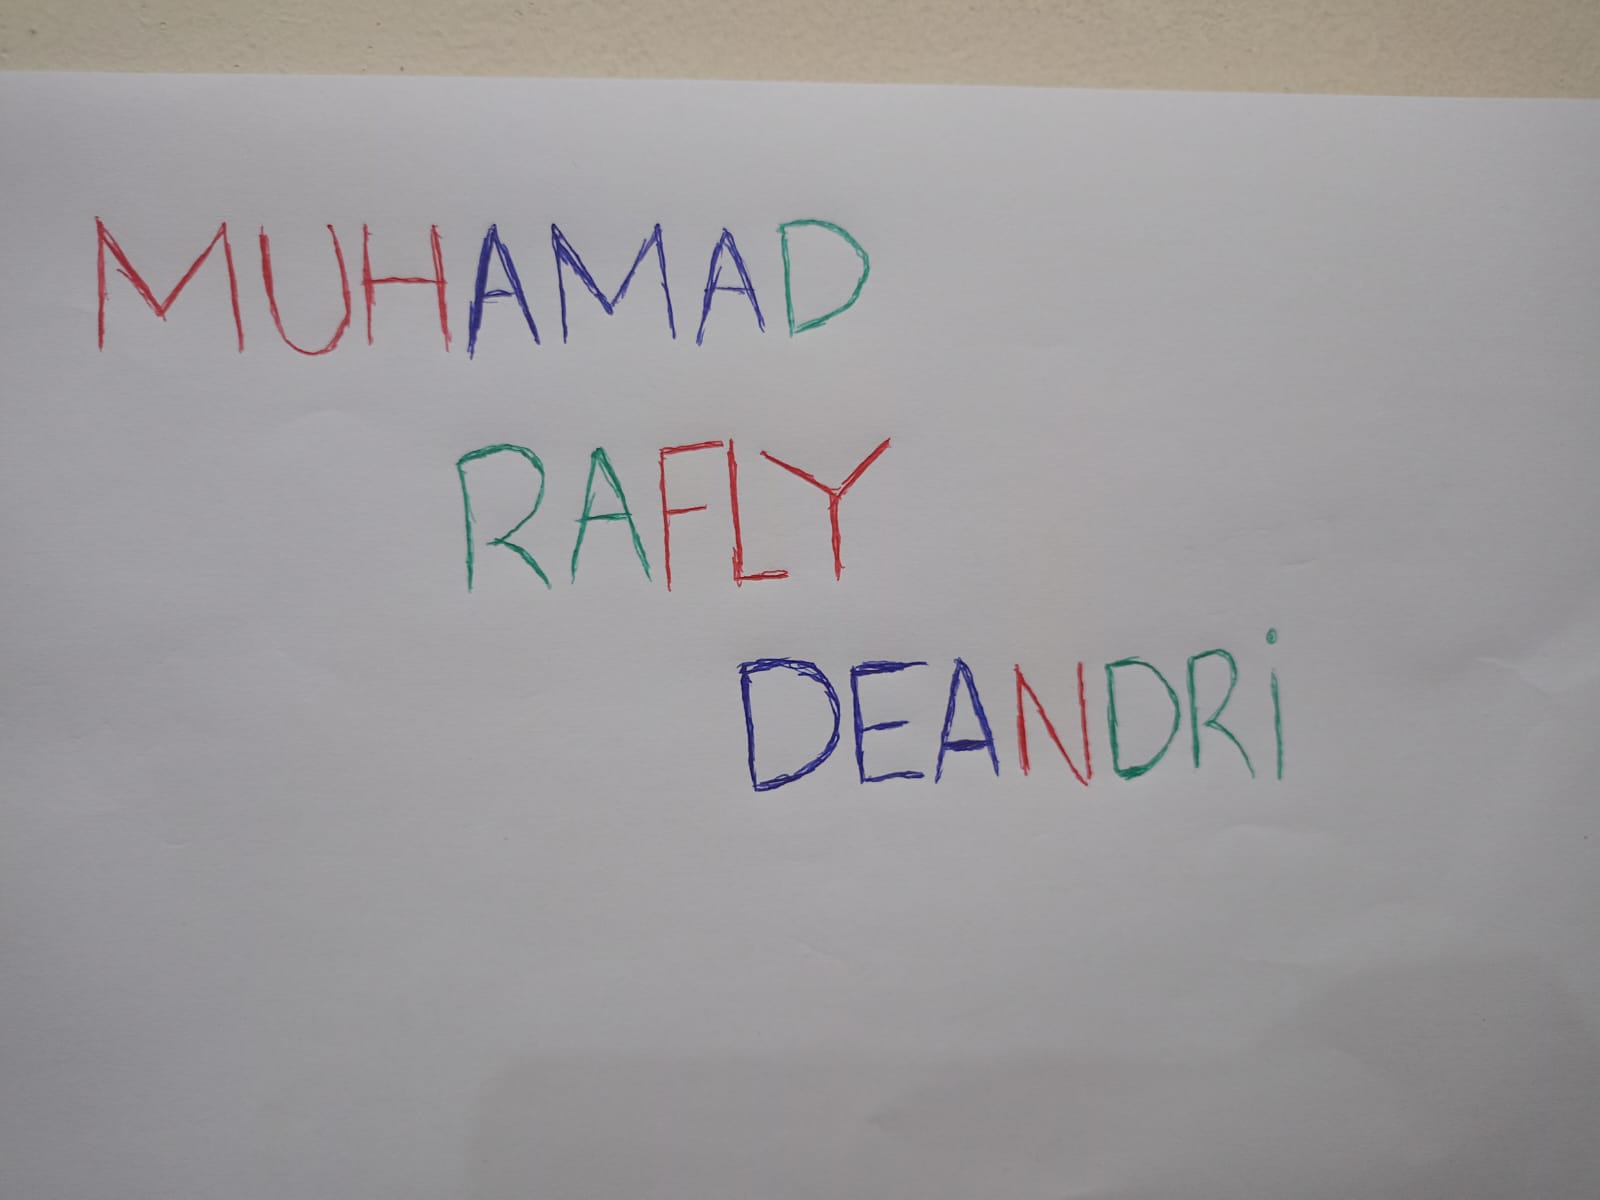 MUHAMAD
RAFLY
DEANDRi